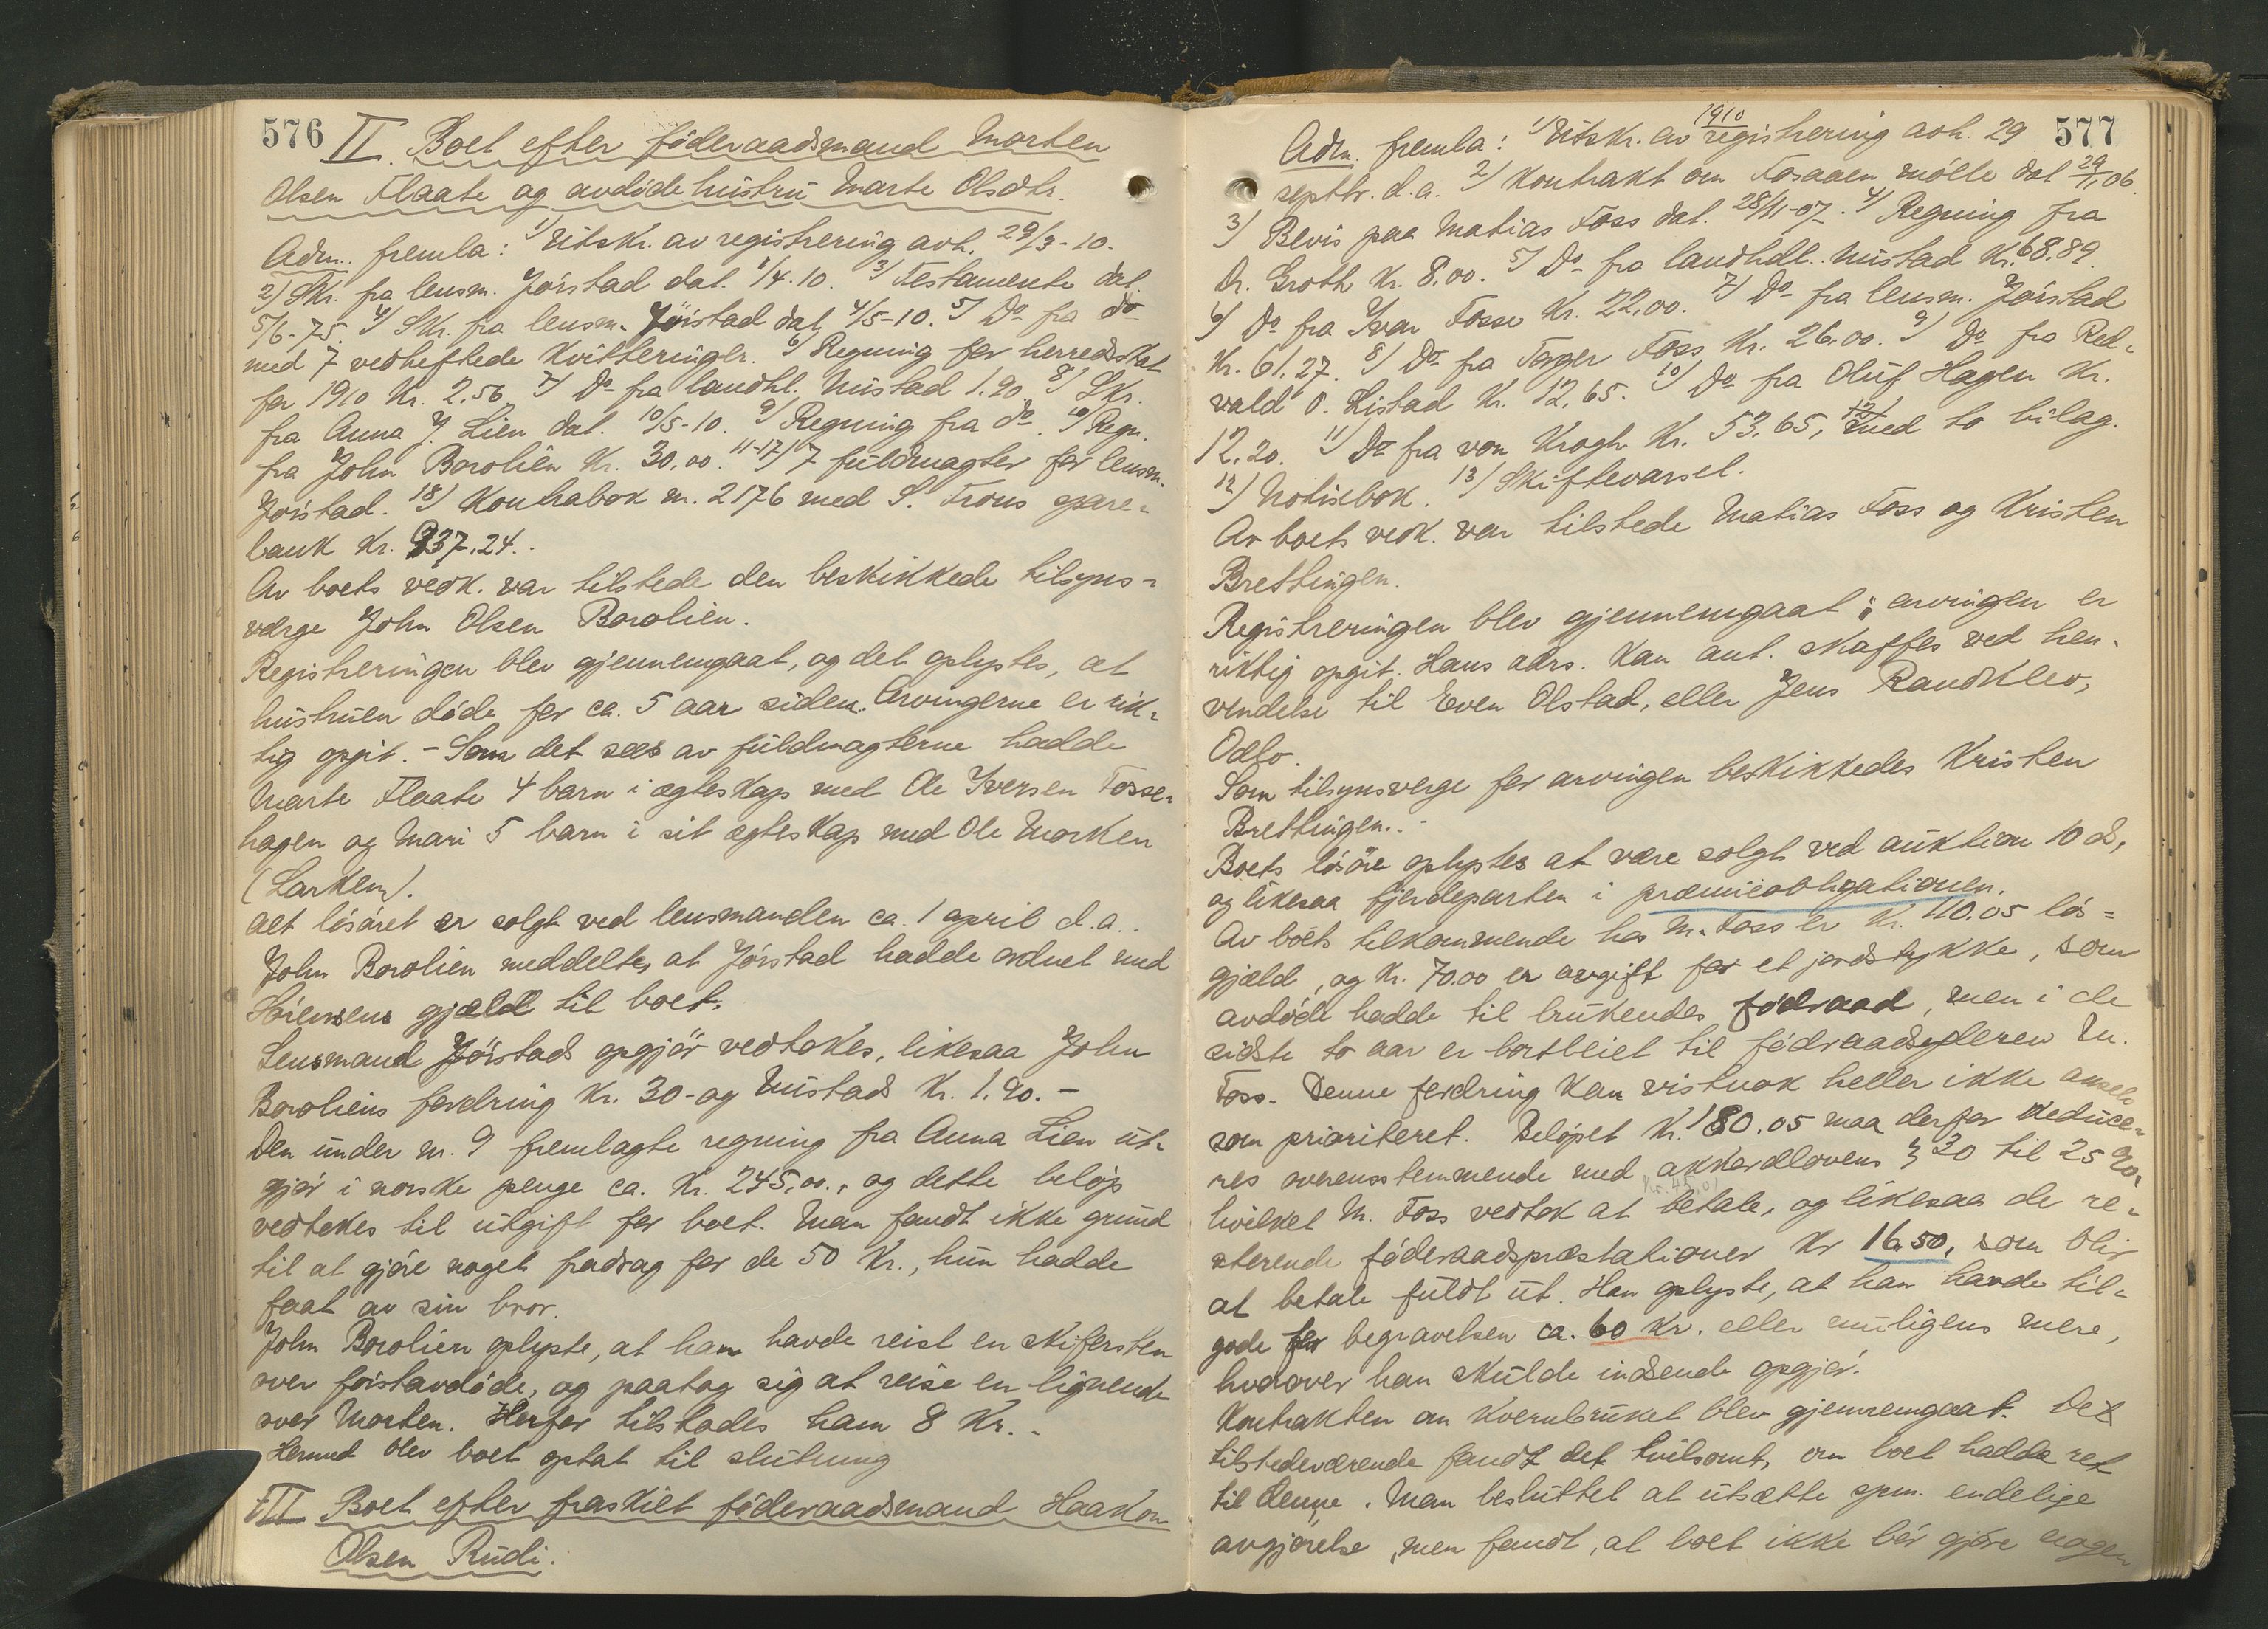 576
II. Boet efter föderaadsmand Morten
Olsen Flaate og avdöde hustru Marte Olsdtr.
Adm. fremla: 1) Utskr. av registrering avh. 29/3-10.
2) Skr. fra lensm. Jörstad dat. 1/4.10. 3) Testamente dat.
5/6-75. 4) Skr. fra lensm. Jörstad dat. 4/5-10. 5) Do fra do
med 7 vedheftede kvitteringer. 6) Regning for herredskat
for 1910 Kr. 2.56 7) Do fra landhl. Mustad 1.90 8) Skr.
fra Anna J. Lien dat. 10/5-10. 9) Regning fra do. 10) Regn.
fra John Borolien Kr. 30.00. 11-17) 7 fuldmagter for lensm.
Jörstad. 18) Kontrabok nr. 2176 med S. Frons spare-
bank Kr. 937.24.
Av boets vedk. var tilstede den beskikkede tilsyns-
værge John Olsen Borolien.
Registreringen blev gjennemgaat, og det oplystes, at
hustruen döde for ca. 5 aar siden. Arvingerne er rik-
tig opgit. - Som det sees av fuldmagterne hadde
Marte Flaate 4 barn i ægteskap med Ole Iversen Fosse-
hagen og Mari 5 barn i sit ægteskap med Ole Morken
(Larken).
Alt lösöret er solgt ved lensmanden ca. 1 april d.a..
John Borolien meddeltes at Jörstad hadde ordnet med
gjæld til boet.
Lensmand Jörstads opgjör vedtokes, likesaa John
Boroliens fordring Kr. 30 - og Mustads Kr. 1.90. -
Den under nr. 9 fremlagte regning fra Anna Lien ut-
gjör i norske penge ca. Kr. 245.00., og dette belöp
vedtokes til utgift for boet. Man fandt ikke grund
til at gjöre noget fradrag for de 50 Kr., hun hadde
faat av sin bror.
John Borolien oplyste, at han havde reist en skifersten
over förstavdöde, og paatog sig at reise en lignende
over Morten. Herfor tilstodes ham 8 Kr..
Hermed blev boet optat til slutning
III Boet efter fraskilt föderaadsmand Haakon
Olsen Rudi.
577
Adm. fremla: 1) Utskr. av registrering avh. 29
1910
septbr. d.a. 2) Kontrakt om Fosaaen mölle dat 29/1.06.
3) Bevis paa Matias Foss dat. 28/11-07. 4) Regning fra
Dr. Groth Kr. 8.00. 5) Do fra landhdl. Mustad Kr. 68.89
6) Do fra Ivar Fosse Kr. 22.00. 7) Do fra lensm. Jörstad
Kr. 61.27. 8) Do fra Torger Foss Kr. 26.00. 9) Do fra Red-
vald O. Listad Kr. 12.65. 10) Do fra Oluf Hagen Kr.
12.20. 11) Do fra von Krogh Kr. 53.65, med to bilag.
12) Notisbok. 13) Skiftevarsel.
Av boets vedk. var tilstede Matias Foss og Kristen
Brettingen.
Registreringen blev gjennemgaat; arvingen er
riktig opgit. Hans adrs. kan ant. skaffes ved hen-
vendelse til Even Olstad, eller Jens Randklev,
Odlo.
Som tilsynsverge for arvingen beskikkedes Kristen
Brettingen..
Boets lösöre oplystes at være solgt ved auktion 10 ds,
og likesaa fjerdeparten i præmieobligationen.
Av boets tilkommende hos M. Foss er Kr. 110.05 lös-
gjæld, og Kr. 70.00 er avgift for et jordstykke, som
avdöde hadde til brukendes födraad, men i de
sidste to aar er bortleiet til födraadsyderen M.
Foss. Denne fordring kan vistnok heller ikke ansees
som prioriteret. Belöpet Kr. 180.05 maa derfor reduce-
res overensstemmende med akkordlovens § 30 til 25 %,
Kr. 45.01
hvilket M. Foss vedtok at betale, og likesaa de re-
sterende föderaadspræstationer Kr 16.50, som blir
at betale fuldt ut. Han oplyste, at han havde til-
gode for begravelsen ca. 60 Kr. eller muligens mere,
hvorover han skulde indsende opgjör.
Kontrakten om kvernbruket blev gjennemgaat. De
tilstedeværende fandt det tvilsomt, om boet hadde ret
til denne. Man besluttet at utsætte spm. endelige
avgjörelse, men fandt, at boet ikke bör gjöre nogen